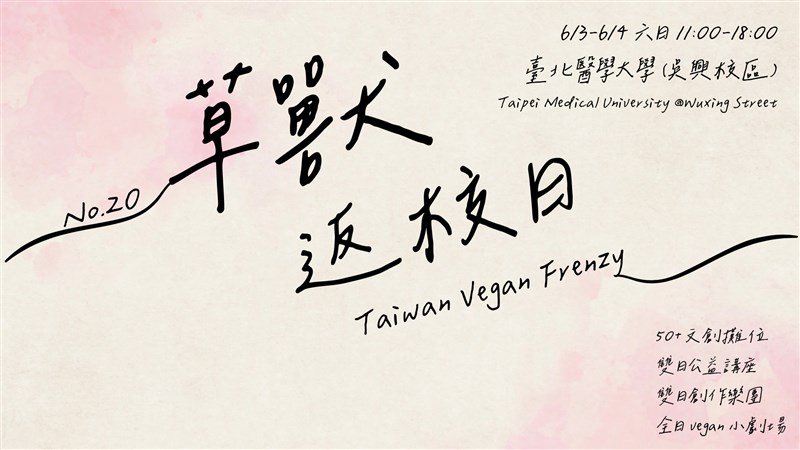 6/3-6/4 六日 11:00-18:00
臺北醫學大學 (吳興校區)
Taipei Medical University @Wuxing Street
No.20
草獸
返校日
Taiwan Vegan Frenzy
50+ 文創攤位
雙日公益講座
雙日創作樂團
全日vegan小劇場